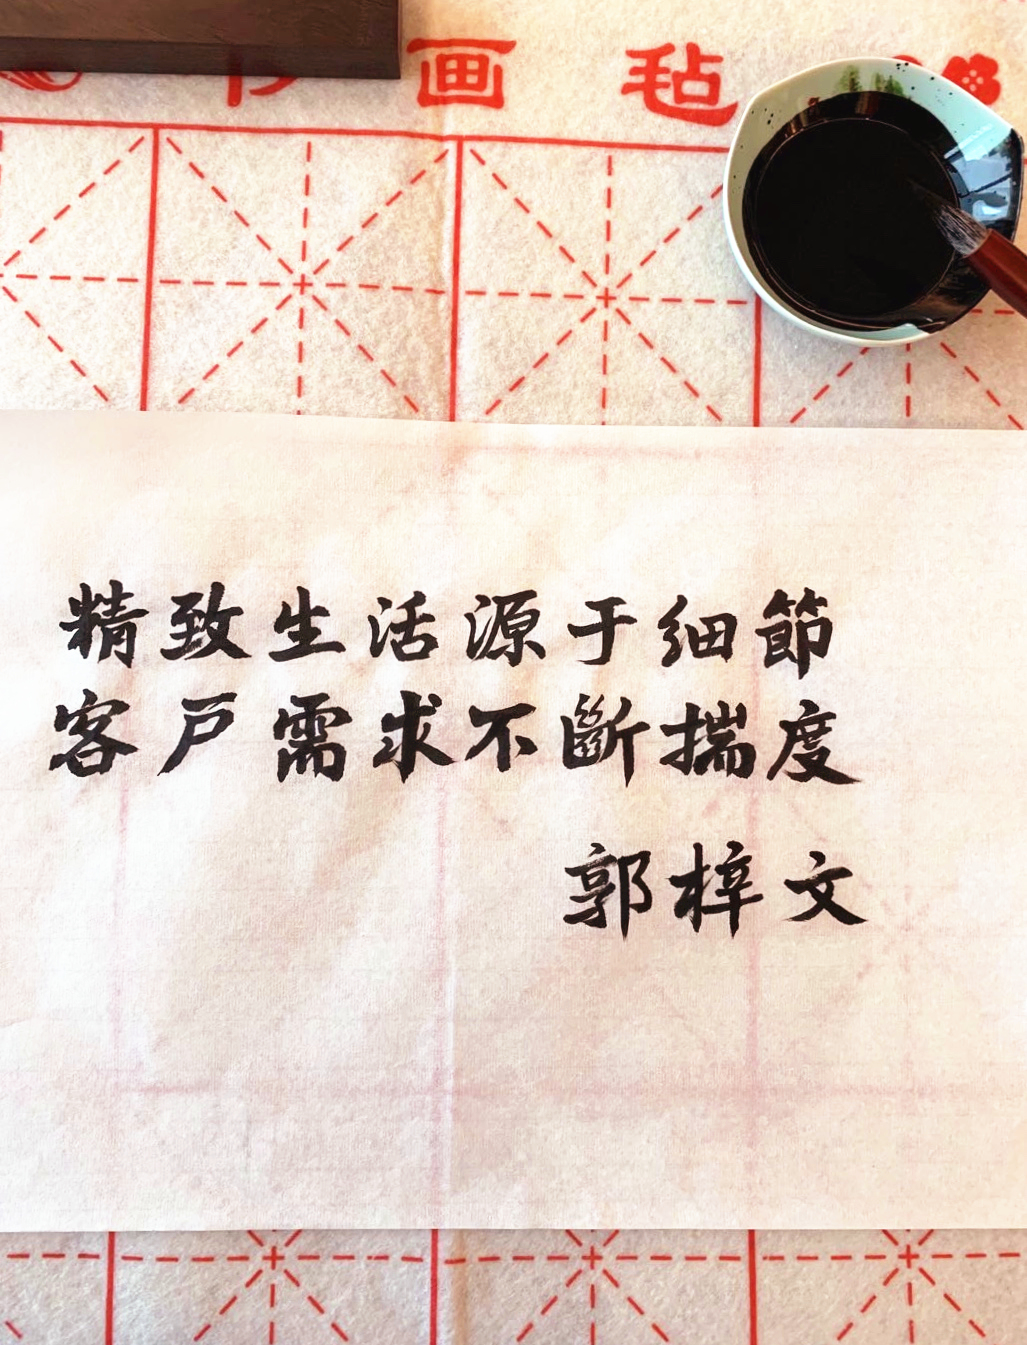 书画毡
精致生活源于细節
客戸需求不斷揣度
郭梓文